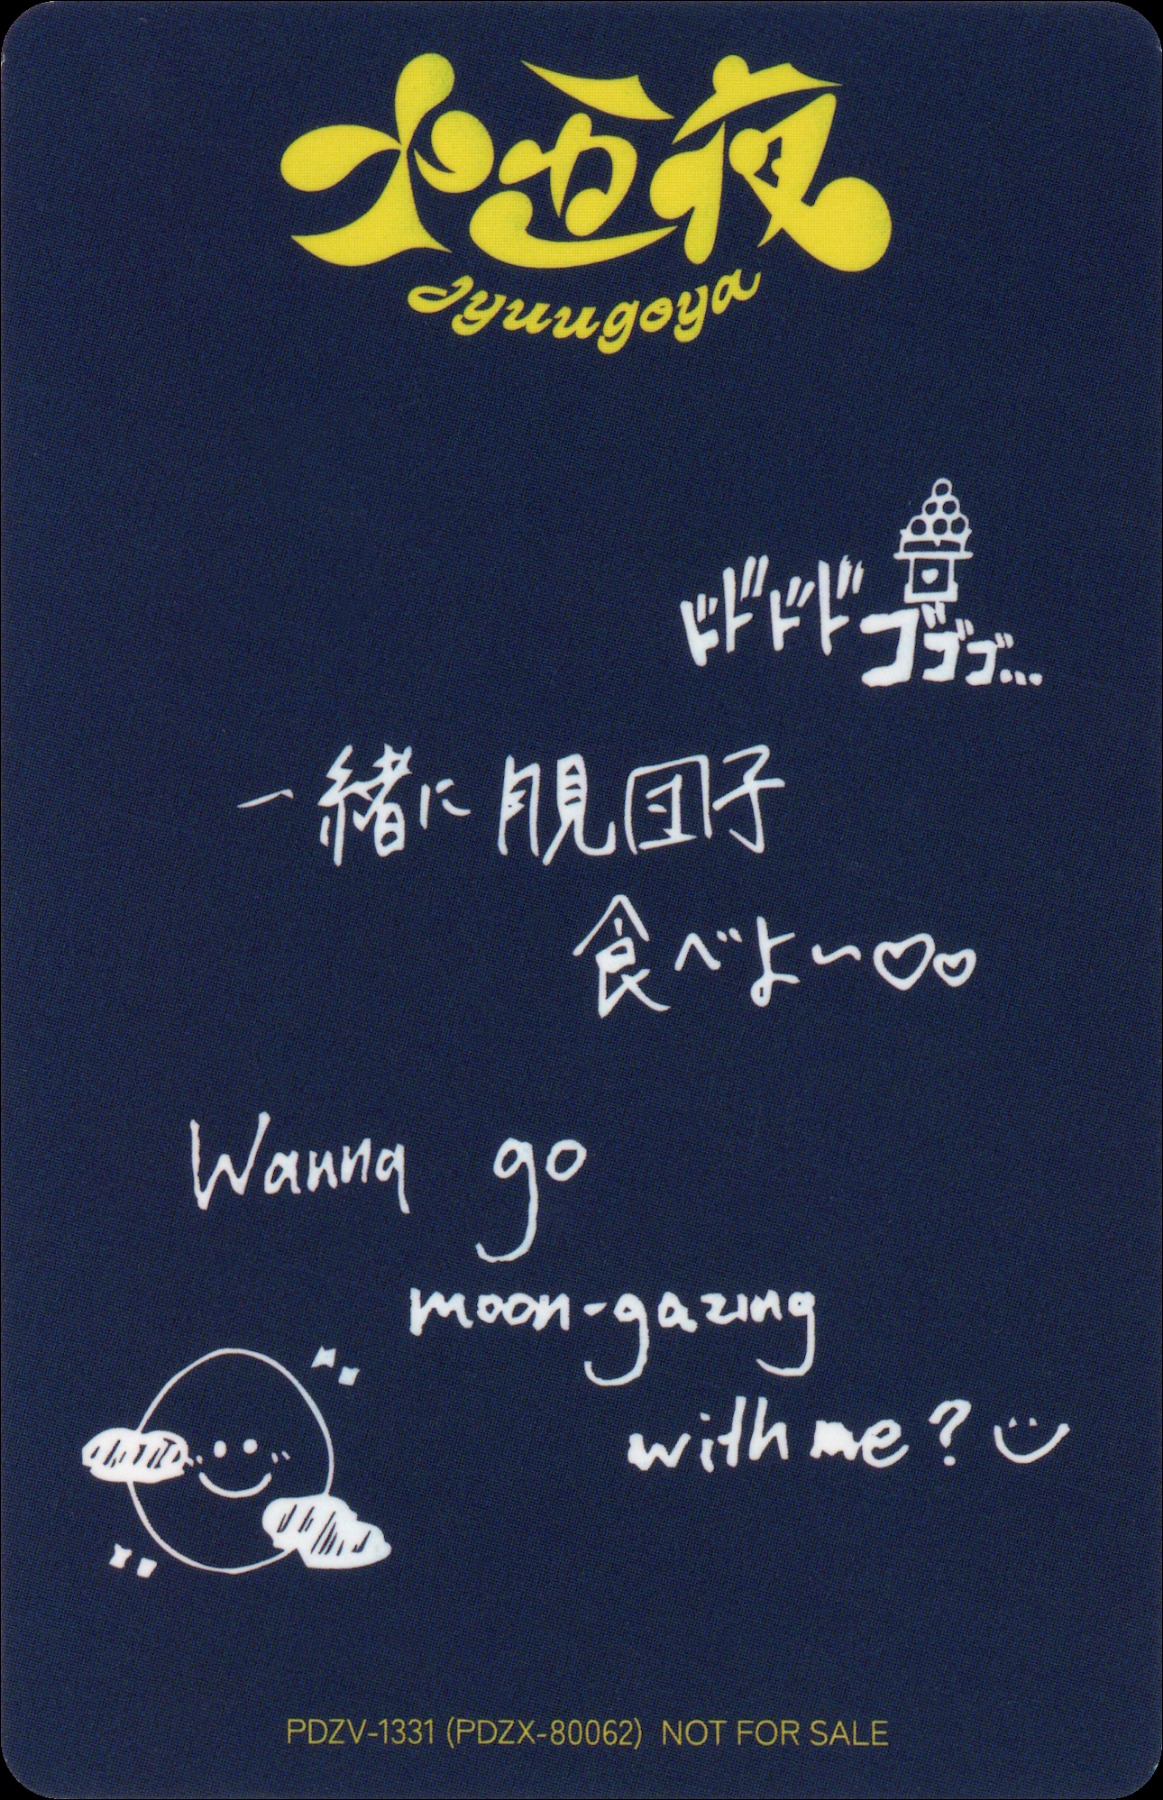 十五夜
Jyuugoya
ドドドド
ゴゴゴ...
一緒に 月見団子
食べよ〜♡♡
Wanna go
moon-gazing
with me?
PDZV-1331 (PDZX-80062) NOT FOR SALE